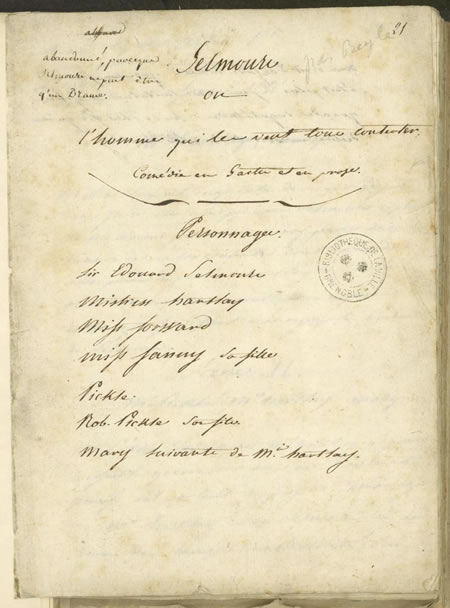 abandonné, parceque
Selmoure ne peut être
qu'un Drame.
21
Selmoure
ou
l'homme qui les veut tous contenter.
Comédie en 5 actes et en prose.
Personnages
Sir Edouard Selmoure
Mistriss hartlay
Miss forward
miss fanny sa fille
Pickle.
Rob. Pickle son fils
Mary suivante de M.e hartlay.
BIBLIOTHÈQUE DE LA VILLE
GRENOBLE